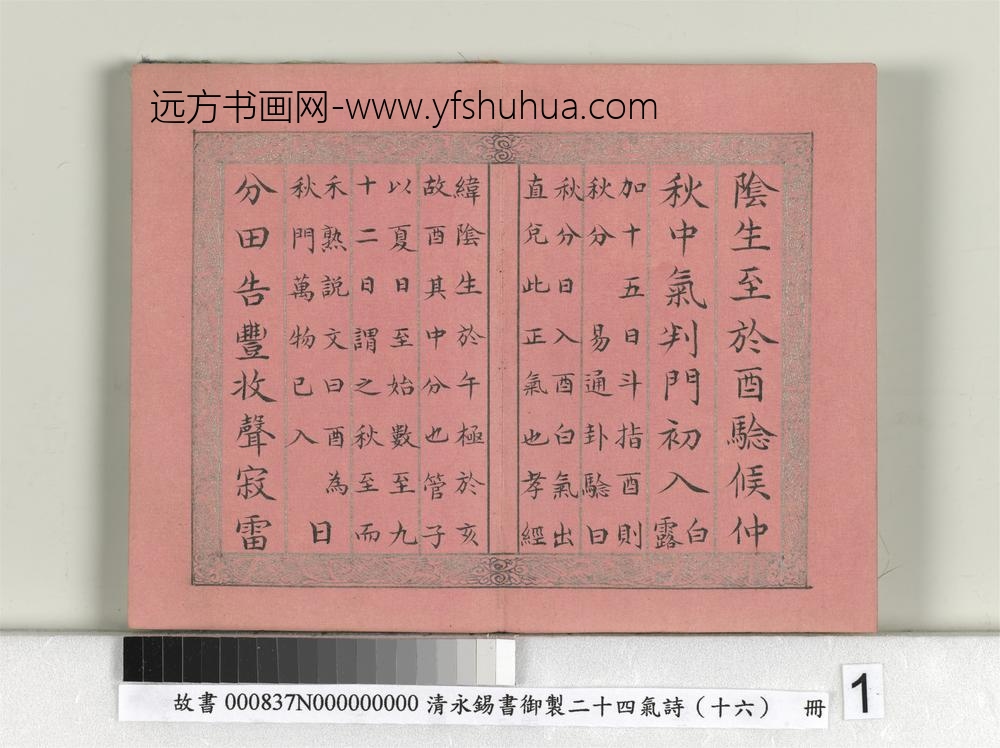 远方书画网-www.yfshuhua.com
陰生至於酉騐候仲
秋中氣判門初入白露
加十五日斗指酉則
秋分 易通卦騐曰
秋分日入酉白氣出
直兌此正氣也孝經
緯陰生於午極於亥
故酉其中分也管子
以夏日至始數至九
十二日謂之秋至而
禾熟説文曰酉為
秋門萬物已入
日
分田告豐收聲寂雷
故書 000837N000000000 清永錫書御製二十四氣詩（十六） 冊
1